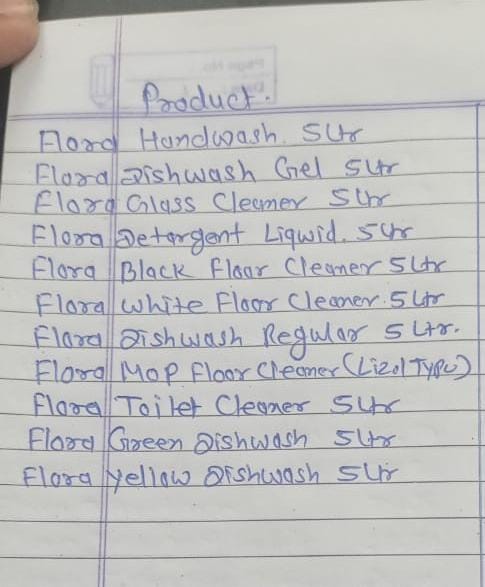 Product.
Flora Handwash. 5Ltr
Flora Dishwash Gel 5Ltr
Flora Glass Cleaner 5Ltr
Flora Detergent Liqwid. 5Ltr
Flora Black Floor Cleaner 5Ltr
Flora White Floor Cleaner. 5Ltr
Flora Dishwash Regular 5 Ltr.
Flora Mop Floor Cleaner (Lizol Type)
Flora Toilet Cleaner 5Ltr
Flora Green Dishwash 5Ltr
Flora Yellow Dishwash 5Ltr